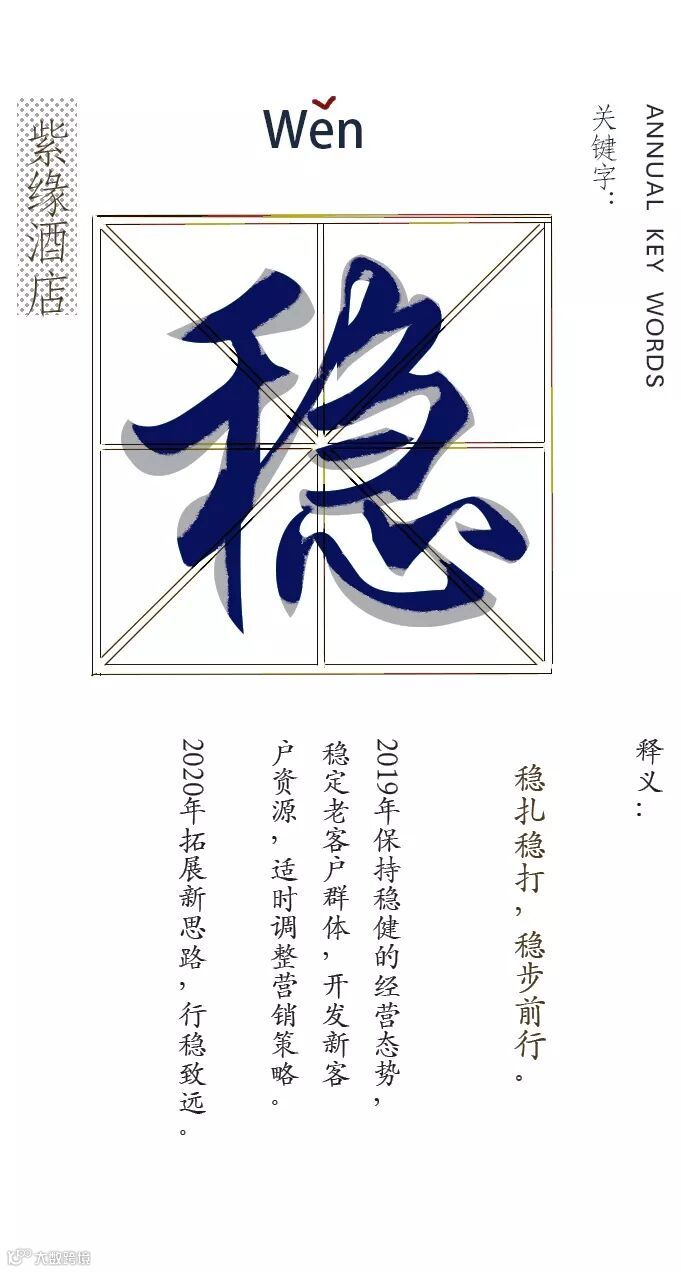 ANNUAL KEY WORDS
关键字：
Wěn
紫缘酒店
稳
释义：
稳扎稳打，稳步前行。
2019年保持稳健的经营态势，
稳定老客户群体，开发新客
户资源，适时调整营销策略。
2020年拓展新思路，行稳致远。
大数跨境